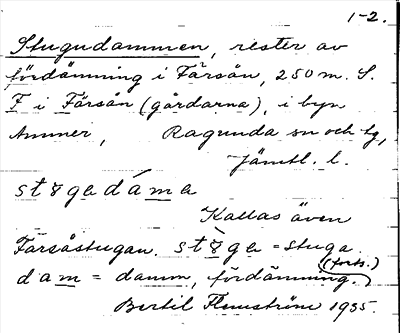 1-2.
Stugudammen, rester av
fördämning i Färsån, 250 m. S.
F i Färsån (gårdarna), i byn
Ammer, Ragunda sn och tg,
Jämtl. l.
stɞgedáme
Kallas även
Färsåstugan. stɞ̀ge = stuga.
dam = damm, fördämning. (forts.)
Bertil Flemström 1935.